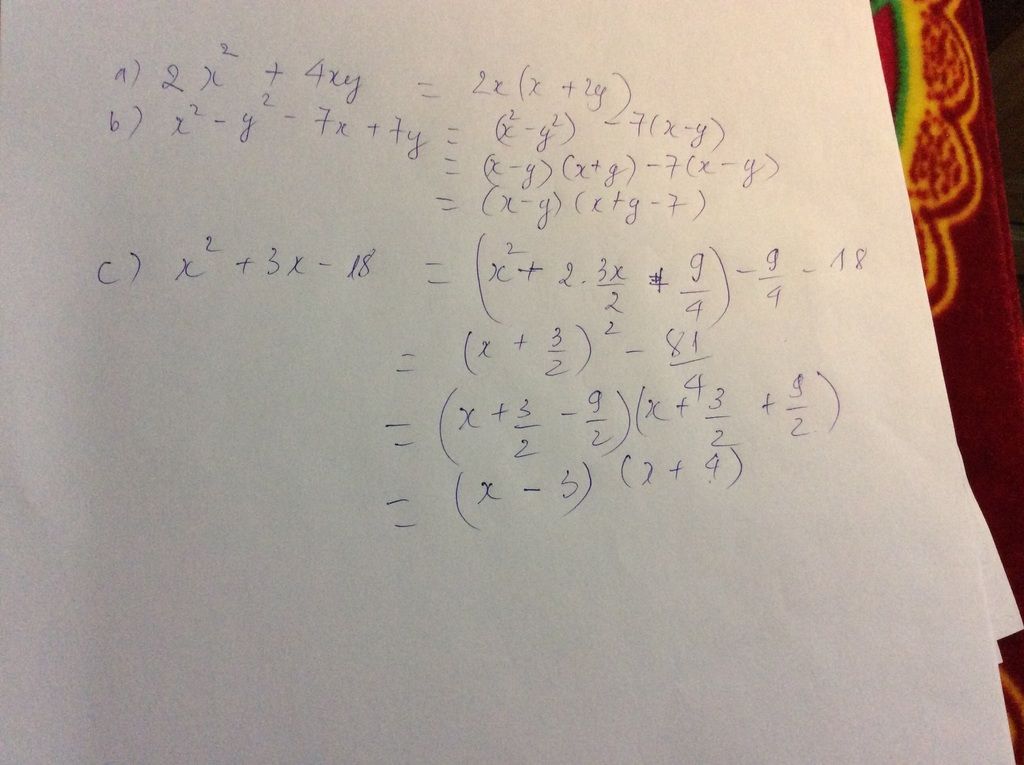 a) 2x² + 4xy = 2x(x + 2y)
b) x² - y² - 7x + 7y = (x² - y²) - 7(x - y)
= (x - y)(x + y) - 7(x - y)
= (x - y)(x + y - 7)
c) x² + 3x - 18 = (x² + 2 . 3x/2 + 9/4) - 9/4 - 18
= (x + 3/2)² - 81/4
= (x + 3/2 - 9/2)(x + 3/2 + 9/2)
= (x - 3)(x + 4)